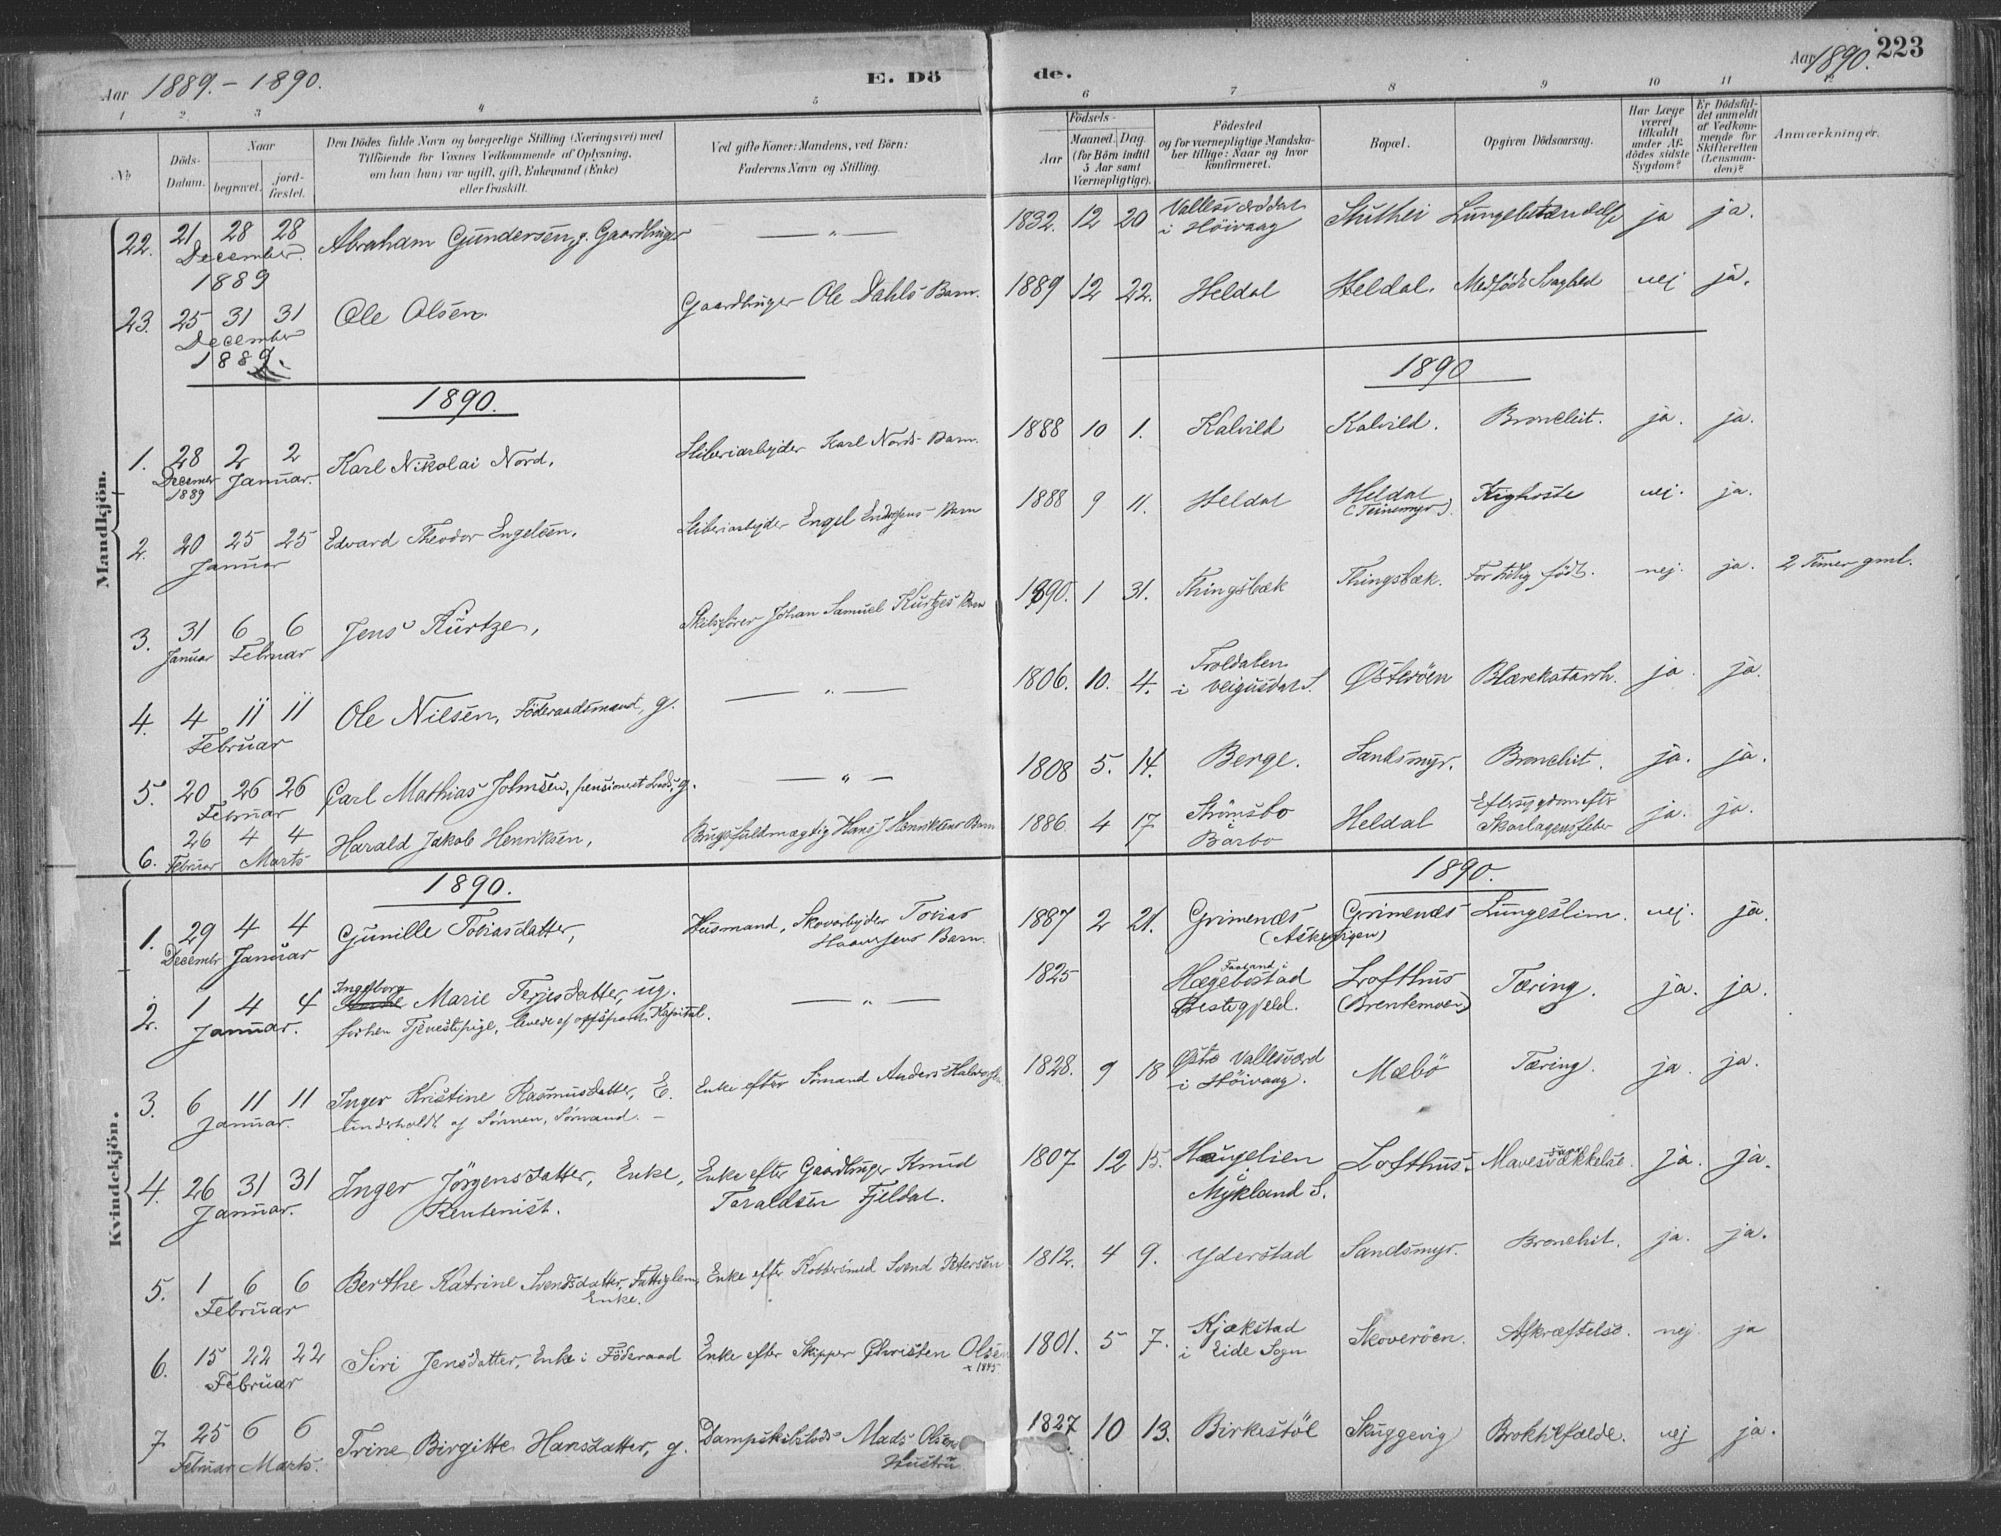 Aar 1889. - 1890.
E. Dö
de.
Aar 1890. 223
1 2 3 4 5
6 7 8 9 10 11 12
No.
Döds-Datum.
Naar
begravet.
jordfæstet.
Den Dödes fulde Navn og borgerlige Stilling (Næringsvei) med
Tilföiende for Voxnes Vedkommende af Oplysning,
om han (hun) var ugift, gift, Enkemand (Enke)
eller fraskilt.
Ved gifte Koner: Mandens, ved Börn:
Faderens Navn og Stilling.
Födsels-
Aar
Maaned. Dag.
(for Börn indtil
5 Aar samt
Værnepligtige).
Födested
og for værnepligtige Mandskaber tillige: Naar og hvor
konfirmeret.
Bopæl.
Opgiven Dödsaarsag.
Har Læge
været
tilkaldt
under Afdödes sidste
Sygdom?
Er Dödsfaldet anmeldt
af Vedkommende for
Skifteretten
(Lensmanden)?
Anmærkninger.
Mandkjön.
22. 21 28 28 December 1889 Abraham Gundersen, g. Gaardbruger — „ — 1832. 12 20 Vallesværddal i Höivaag Stuthei Lungebetændelse ja ja.
23. 25 31 31 December 1889. Ole Olsen. Gaardbruger Ole Dahls Barn. 1889 12 22. Heldal Heldal. Medfödt Svaghed nej ja.
1890.
1890
1. 28 2 2 December 1889 Januar. Karl Nikolai Nord. Sliberiarbejder Karl Nords Barn. 1888 10 1. Kalvild Kalvild. Bronchit. ja. ja.
2. 20 25 25 Januar Edvard Theodor Engelsen. Sliberiarbejder Engel Barn 1888 9 11. Heldal Heldal (Teinemyr). Kighoste nej. ja.
3. 31 6 6 Januar Februar Jens Kurtze, Skibsförer Johan Samuel Kurtzes Barn 1890. 1 31. Thingsbæk Thingsbæk. For tidlig födt. nej. ja. 2 Timer gml.
4. 4 11 11 Februar Ole Nilsen, Föderaadsmand, g. — „ — 1806. 10. 4. Troldalen i Veigusdal S. Österöen Blærekatarrh. ja. ja.
5. 20 26 26 Februar Carl Mathias Johnsen, pensioneret Lods, g. — „ — 1808 5. 14. Berge. Sandsmyr. Bronchit. ja. ja.
6. 26 4 4 Februar Marts Harald Jakob Henriksen, Hans J Henriksens Barn 1886 4 17 Strömsbo Barbo Heldal Eftersygdom efter Skarlagensfeber ja. ja.
Kvindekjön.
1890.
1890.
1. 29 4 4 December Januar Gunille Tobiasdatter, Husmand, Skovarbejder Tobias Barn. 1887 2 21. Grimenæs Grimenæs Lungeslim. nej. ja.
2. 1 4 4 Januar. Ingeborg Marie Terjesdatter, ug. forhen Tjenestepige, levede af opspart Kapital. — „ — 1825 Hægebostad Prestegjeld. Lofthus (Brentemoen) Tæring. ja. ja.
3. 6 11 11 Januar. Inger Kristine Rasmusdatter, E. underholdt af Sönnen, Sömand. — Enke efter Sömand Anders 1828. 9 18 Östre Vallesværd i Höivaag. Mæbö Tæring. ja. ja.
4. 26 31 31 Januar. Inger Jörgensdatter, Enke, Rentenist. Enke efter Gaardbruger Knud Taraldsen Fjeldal. 1807 12 15. Haugelien Mykland S. Lofthus. ja. ja.
5. 1 6 6 Februar Berthe Katrine Svendsdatter, Fattiglem, Enke. Enke efter Kobbersmed Svend Petersen 1812. 4 9. Yderstad Sandsmyr. Bronchit. ja. ja.
6. 15 22 22 Februar Siri Jensdatter, Enke i Föderaad Enke efter Skipper Christen Olsen 1801. 5 7. Kjækstad i Eide Sogn Skoveröen. Afkræftelse. nej. ja
7 25 6 6 Februar Marts. Trine Birgitte Hansdatter, g. Dampskibslods Mads Olsens Hustru 1827 10 13. Birkestöl Skuggevig Broktilfælde. nej ja.